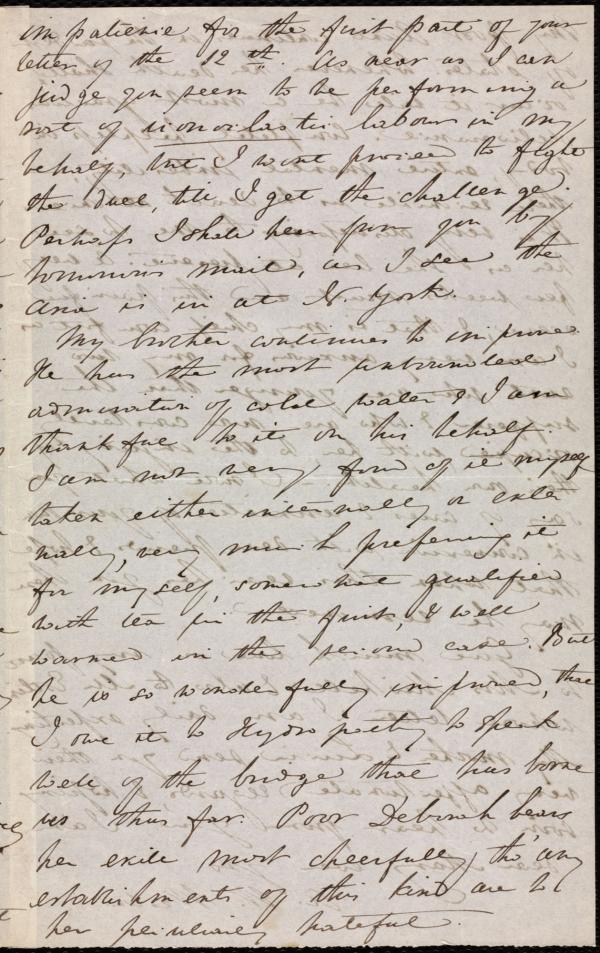 impatience for the first part of your
letter of the 12th. As near as I can
judge you seem to be performing a
sort of iconoclastic labour in my
behalf, but I wont proceed to fight
the duel, till I get the challenge.
Perhaps I shall hear from you by
tomorrow's mail, as I see the
Asia is in at N. York.
My brother continues to improve.
He has the most unbounded
admiration of cold water & I am
thankful to it on his behalf.
I am not very fond of it myself
taken either internally or exter
nally, very much preferring it
for myself, somewhat qualified
with tea in the first, & well
warmed in the second case. But
he is so wonderfully improved, that
I owe it to Hydropathy to speak
well of the bridge that has borne
us thus far. Poor Deborah bears
her exile most cheerfully, tho' any
establishments of this kind are to
her peculiarly hateful.